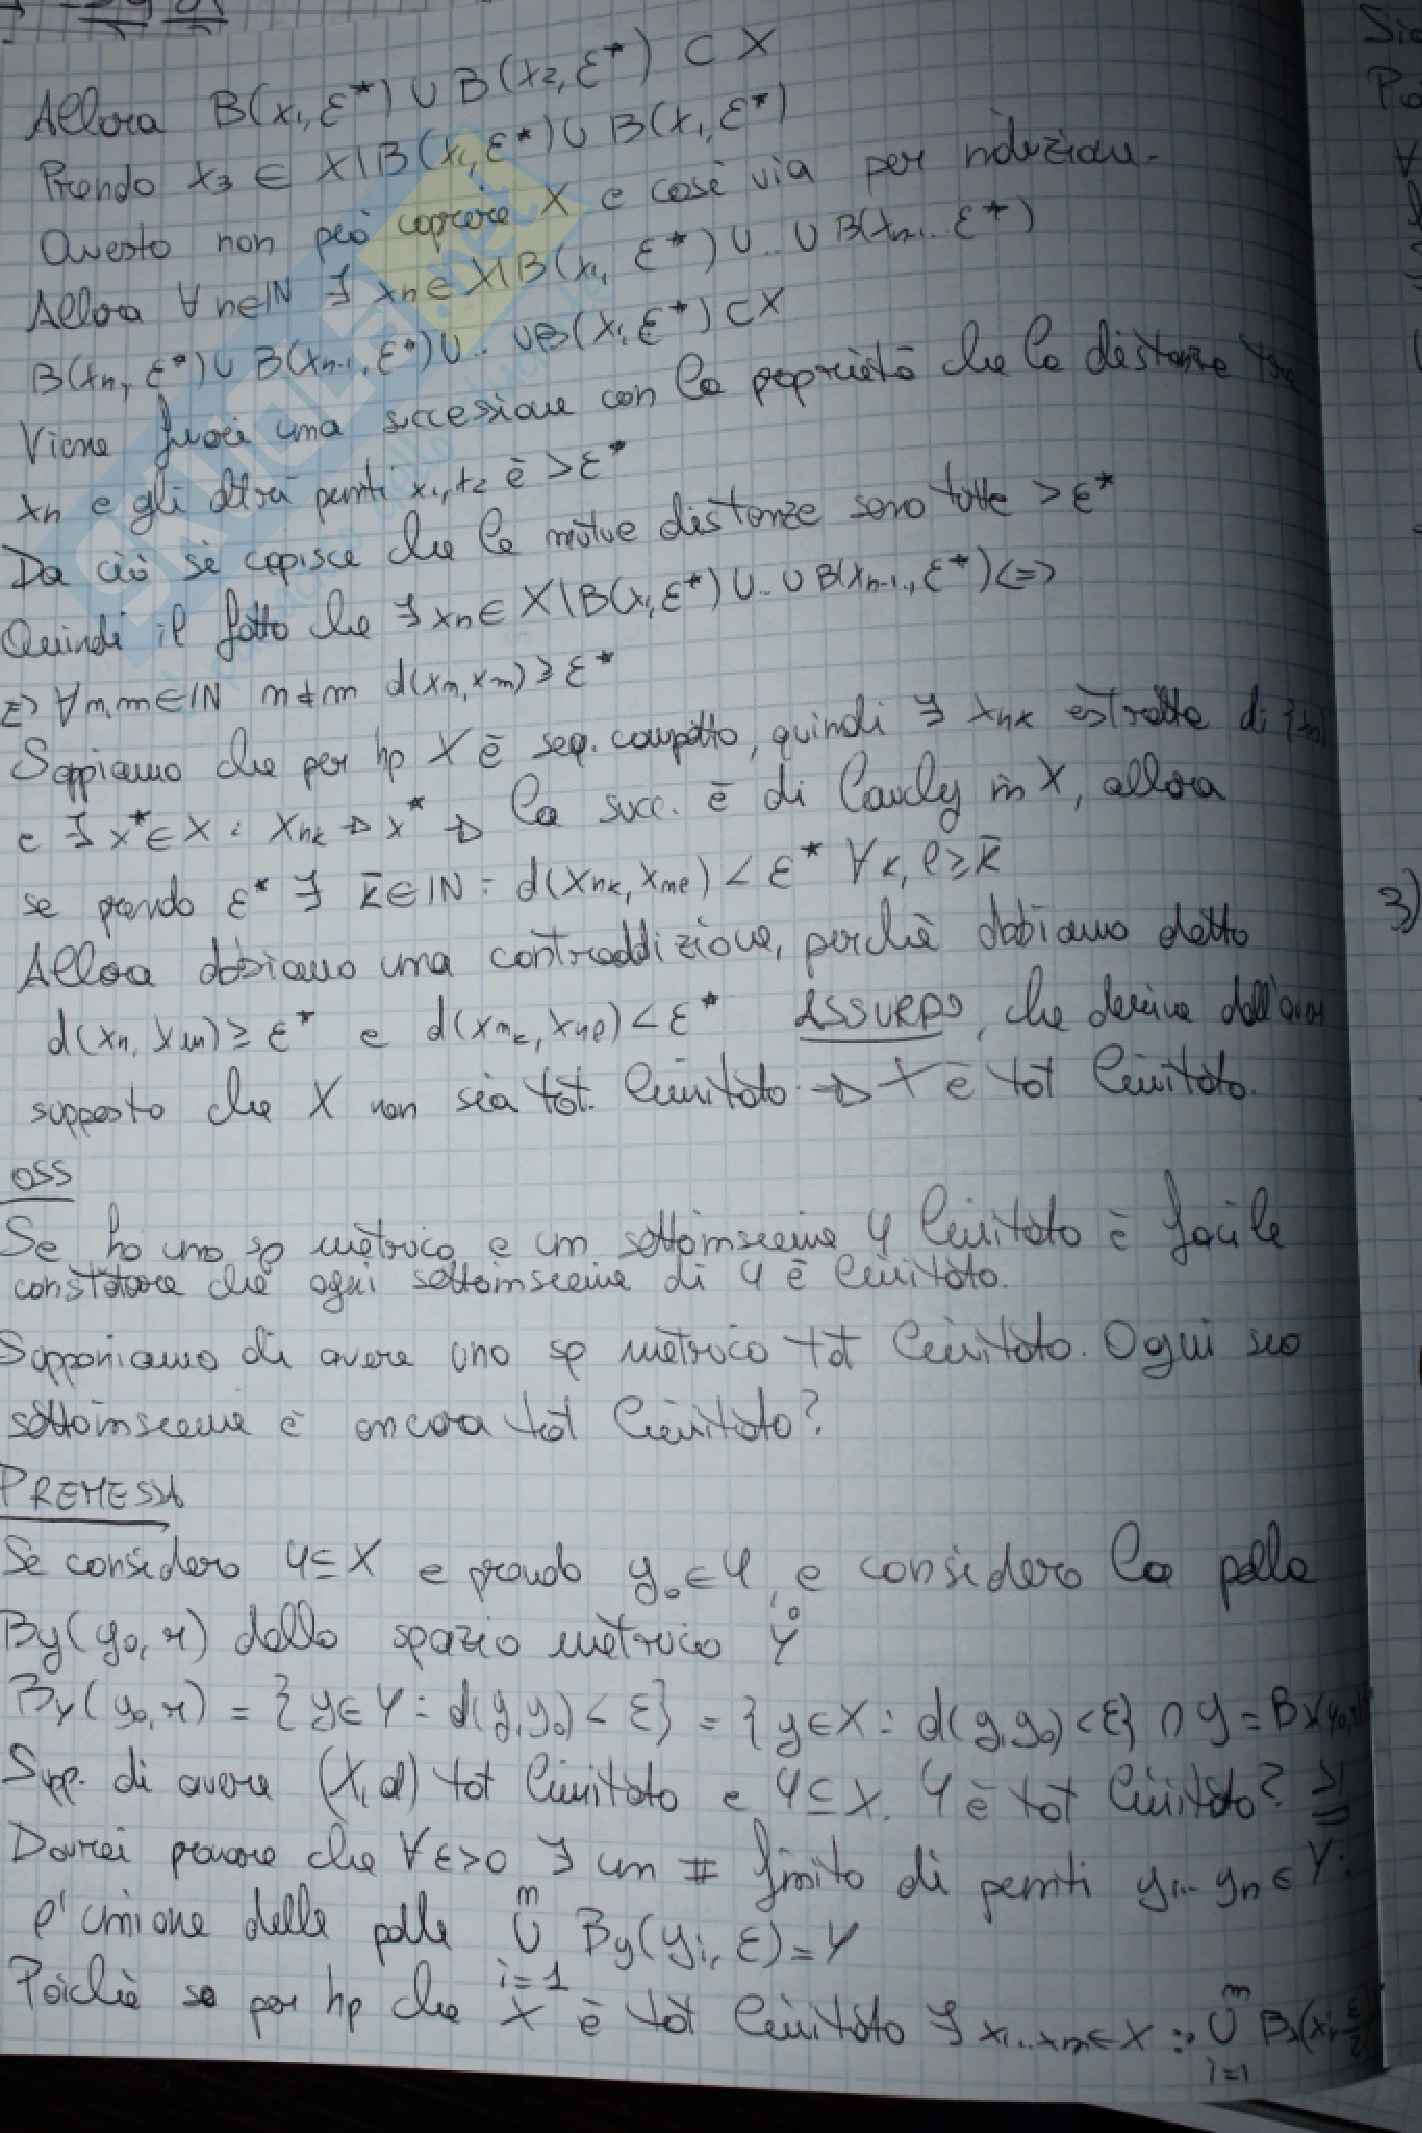 Allora B(x₁, ε*) ∪ B(x₂, ε*) ⊂ X
Prendo x₃ ∈ X \ B(x₁, ε*) ∪ B(x₁, ε*)
Questo non può coprire X e così via per induzione.
Allora ∀ n∈ℕ ∃ xₙ ∈ X\B(x₁, ε*) ∪ .. ∪ B(xₙ₋₁, ε*)
B(xₙ, ε*) ∪ B(xₙ₋₁, ε*) ∪ .. ∪B(x₁, ε*) ⊂ X
Viene fuori una successione con la proprietà che la distanza tra
xₙ e gli altri punti x₁, x₂ è > ε*
Da ciò si capisce che le mutue distanze sono tutte > ε*
Quindi il fatto che ∃ xₙ ∈ X\B(x₁, ε*) ∪ .. ∪ B(xₙ₋₁, ε*) <=>
=> ∀ n, m ∈ ℕ n ≠ m d(xₙ, xₘ) ≥ ε*
Sappiamo che per hp X è seq. compatto, quindi ∃ xₙₖ estratta di {xₙ}
e ∃ x* ∈ X : xₙₖ → x* → la succ. è di Cauchy in X, allora
se prendo ε* ∃ k̄ ∈ ℕ : d(xₙₖ, xₙₗ) < ε* ∀ k, l ≥ k̄
Allora abbiamo una contraddizione, perchè abbiamo detto
d(xₙ, xₘ) ≥ ε* e d(xₙₖ, xₙₗ) < ε* ASSURDO, che deriva dall'aver
supposto che X non sia tot. limitato → X è tot limitato.
OSS
Se ho uno sp metrico e un sottoinsieme Y limitato è facile
constatare che ogni sottoinsieme di Y è limitato.
Supponiamo di avere uno sp metrico tot limitato. Ogni suo
sottoinsieme è ancora tot limitato?
PREMESSA
Se considero Y ⊆ X e prendo y₀ ∈ Y, e considero la palla
By(y₀, r) dello spazio metrico Y
By(y₀, r) = {y ∈ Y : d(y, y₀) < ε} = {y ∈ X : d(y, y₀) < ε} ∩ Y = Bx(y₀, r)
Supp. di avere (X, d) tot limitato e Y ⊆ X. Y è tot limitato? SI
Dovrei provare che ∀ ε>0 ∃ un # finito di punti y₁.. yₙ ∈ Y :
l'unione delle palle ⋃ᵐᵢ₌₁ By(yᵢ, ε) = Y
Poichè so per hp che X è tot limitato ∃ x₁...xₘ ∈ X : ⋃ᵐᵢ₌₁ Bx(xᵢ, ε/2)
3)